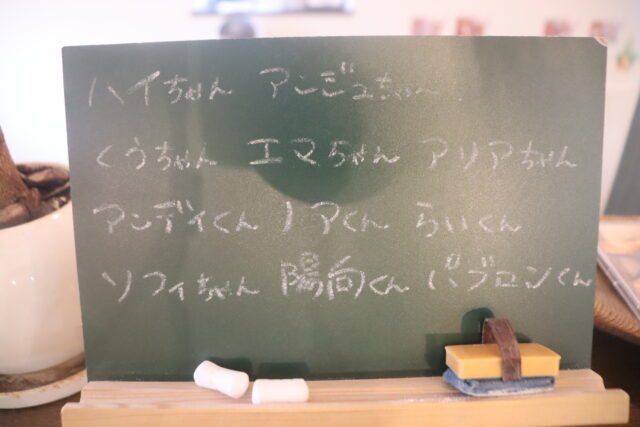 ハイちゃん アンジュちゃん
くうちゃん エマちゃん アリアちゃん
アンディくん ノアくん らいくん
ソフィちゃん 陽向くん パブロンくん